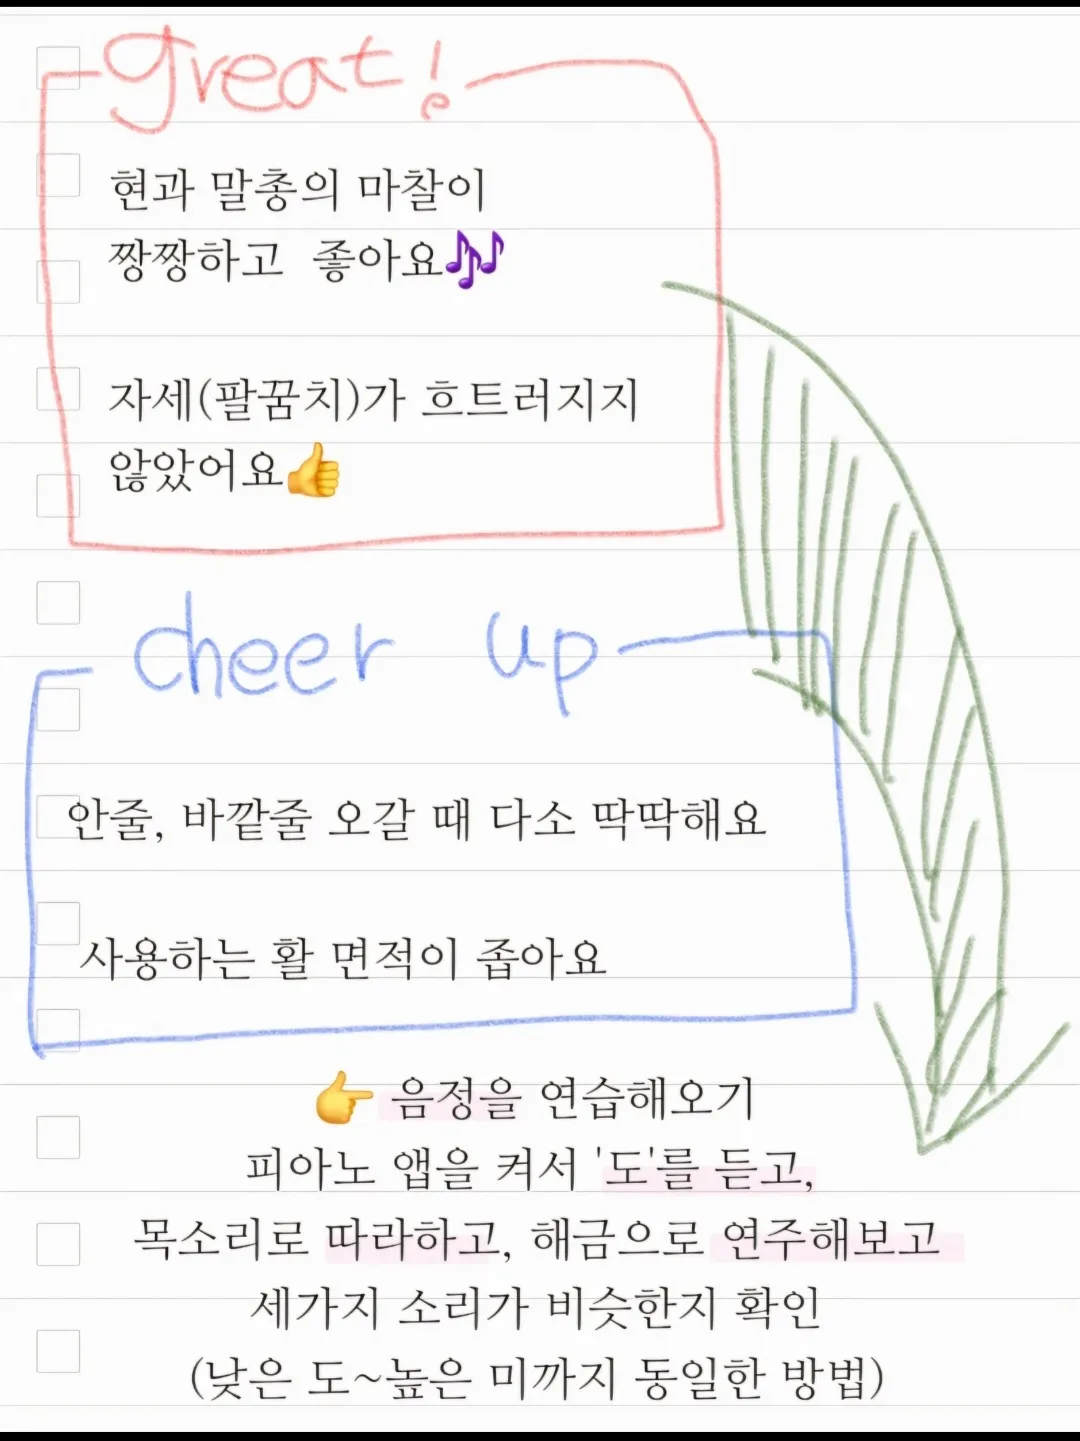 great!
현과 말총의 마찰이
짱짱하고 좋아요🎶
자세(팔꿈치)가 흐트러지지
않았어요👍
cheer up
안줄, 바깥줄 오갈 때 다소 딱딱해요
사용하는 활 면적이 좁아요
👉 음정을 연습해오기
피아노 앱을 켜서 '도'를 듣고,
목소리로 따라하고, 해금으로 연주해보고
세가지 소리가 비슷한지 확인
(낮은 도~높은 미까지 동일한 방법)